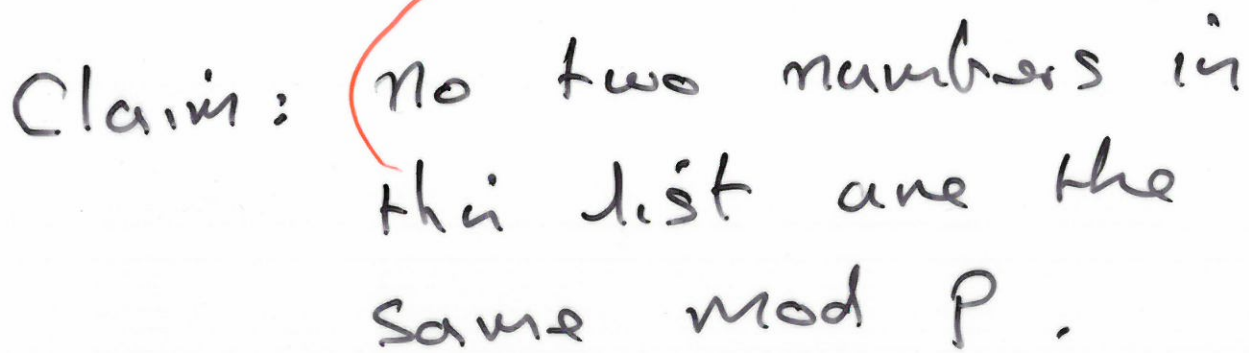 Claim: no two numbers in
this list are the
same mod P.